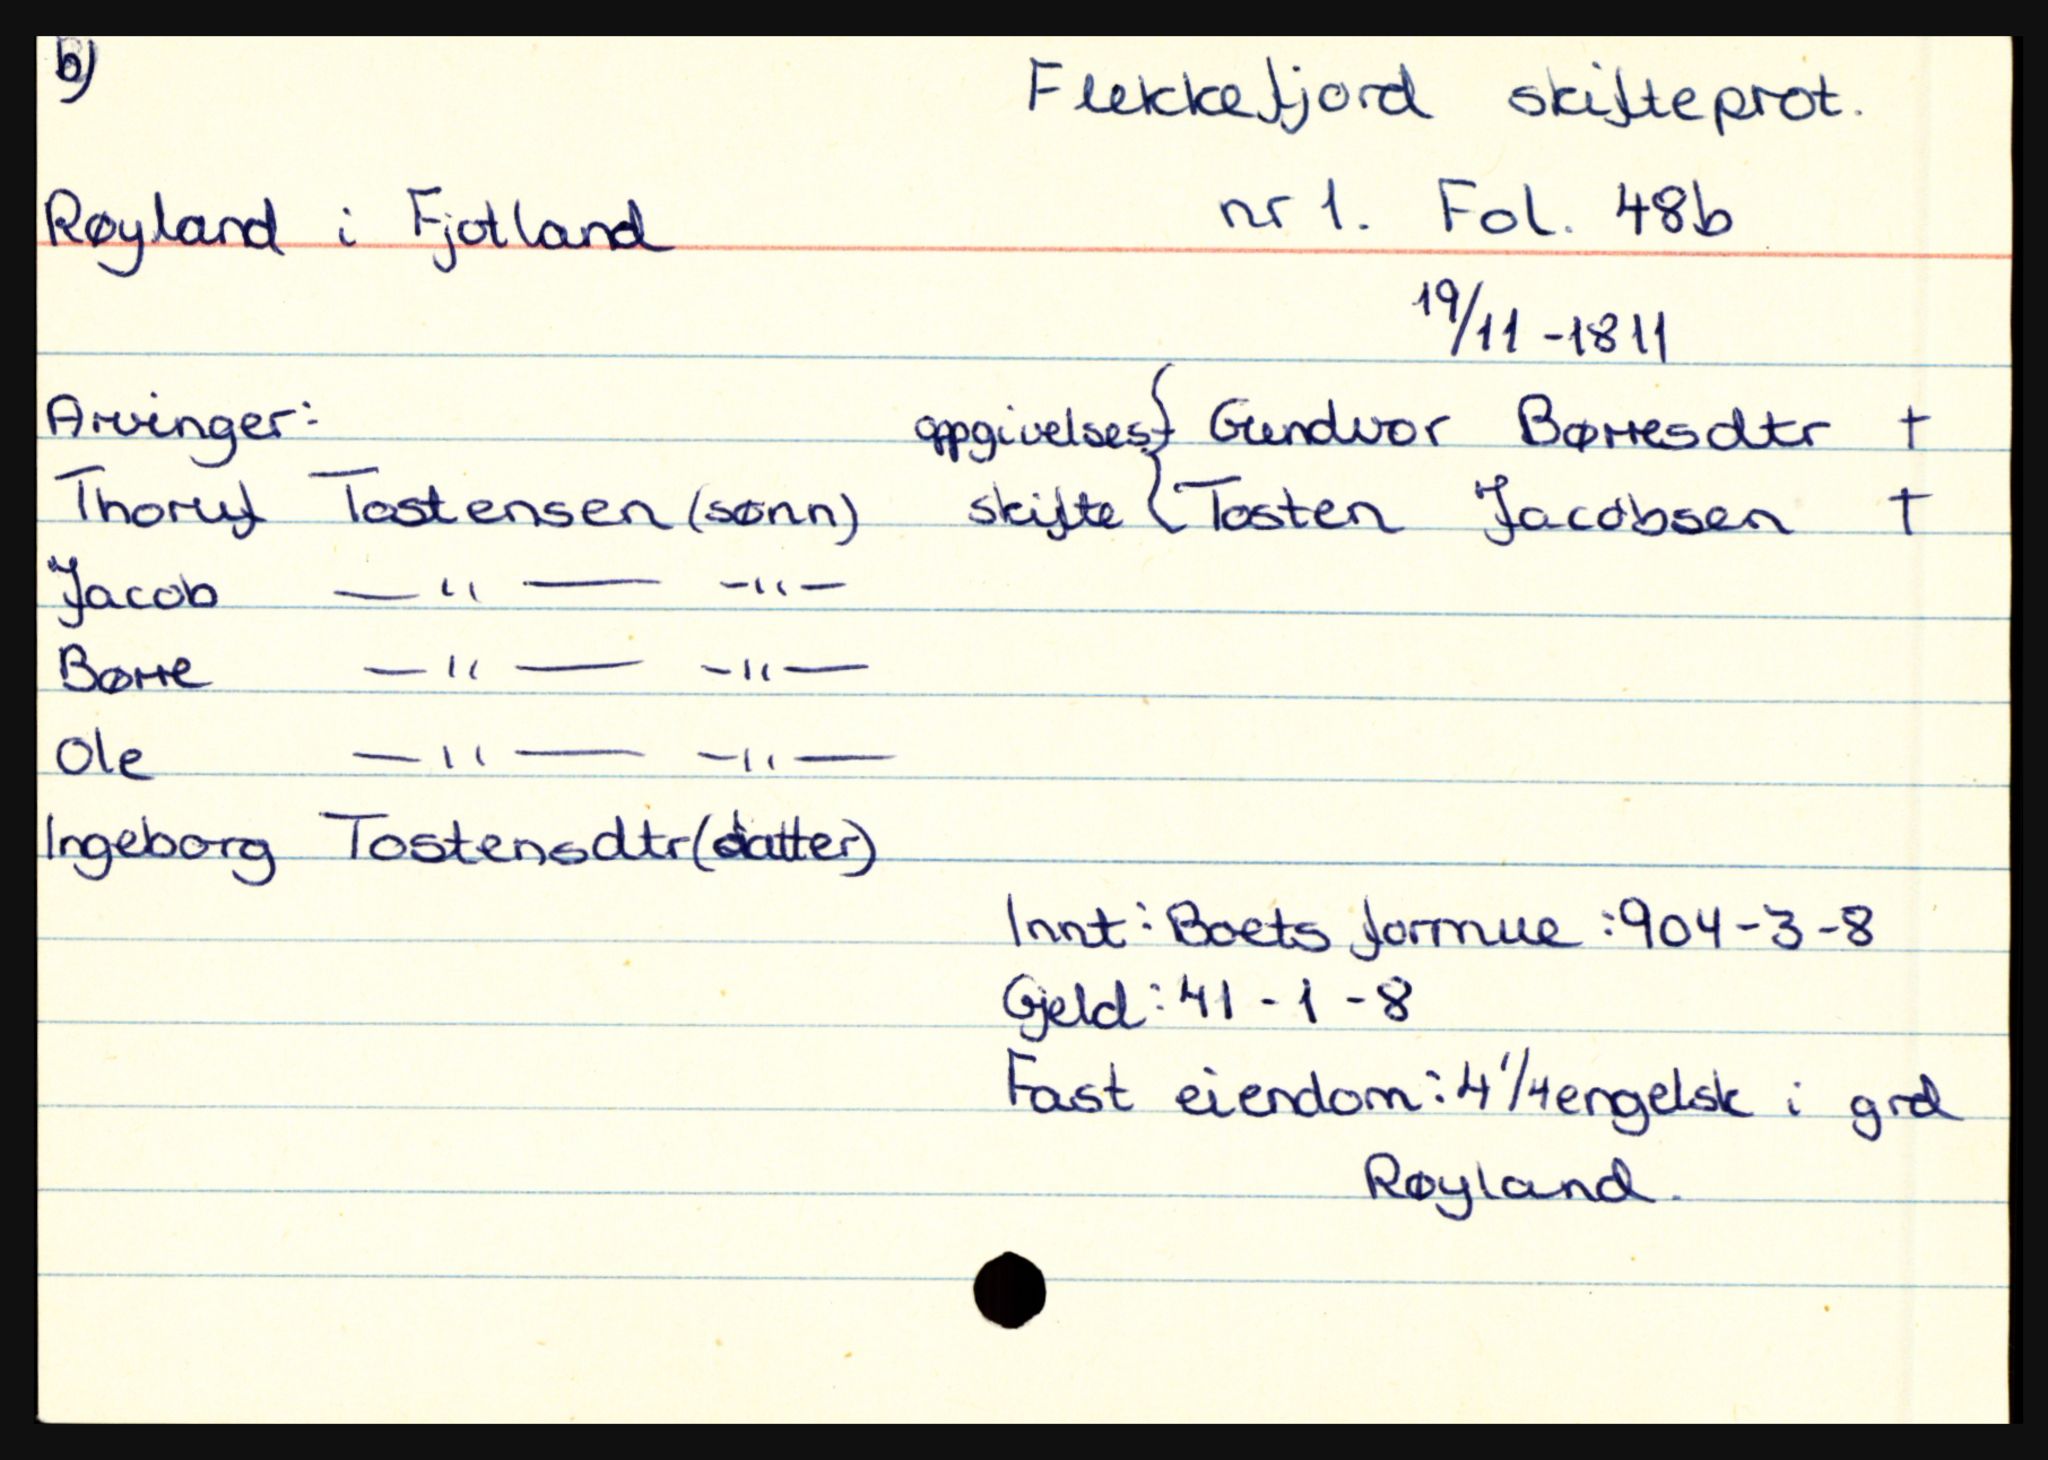 b)
Flekkefjord skifteprot.
Røyland i Fjotland
nr 1. Fol. 48b
19/11 -1811
Arvinger: oppgivelses- { Gundvor Børresdtr †
Thoruf Tostensen (sønn) skifte { Tosten Jacobsen †
Jacob — " — - " -
Børre — " — - " —
Ole — " — - " —
Ingeborg Tostensdtr (datter)
Innt: Boets formue: 904-3-8
Gjeld: 41-1-8
Fast eiendom: 4 1/4 engelsk i grd
Røyland.